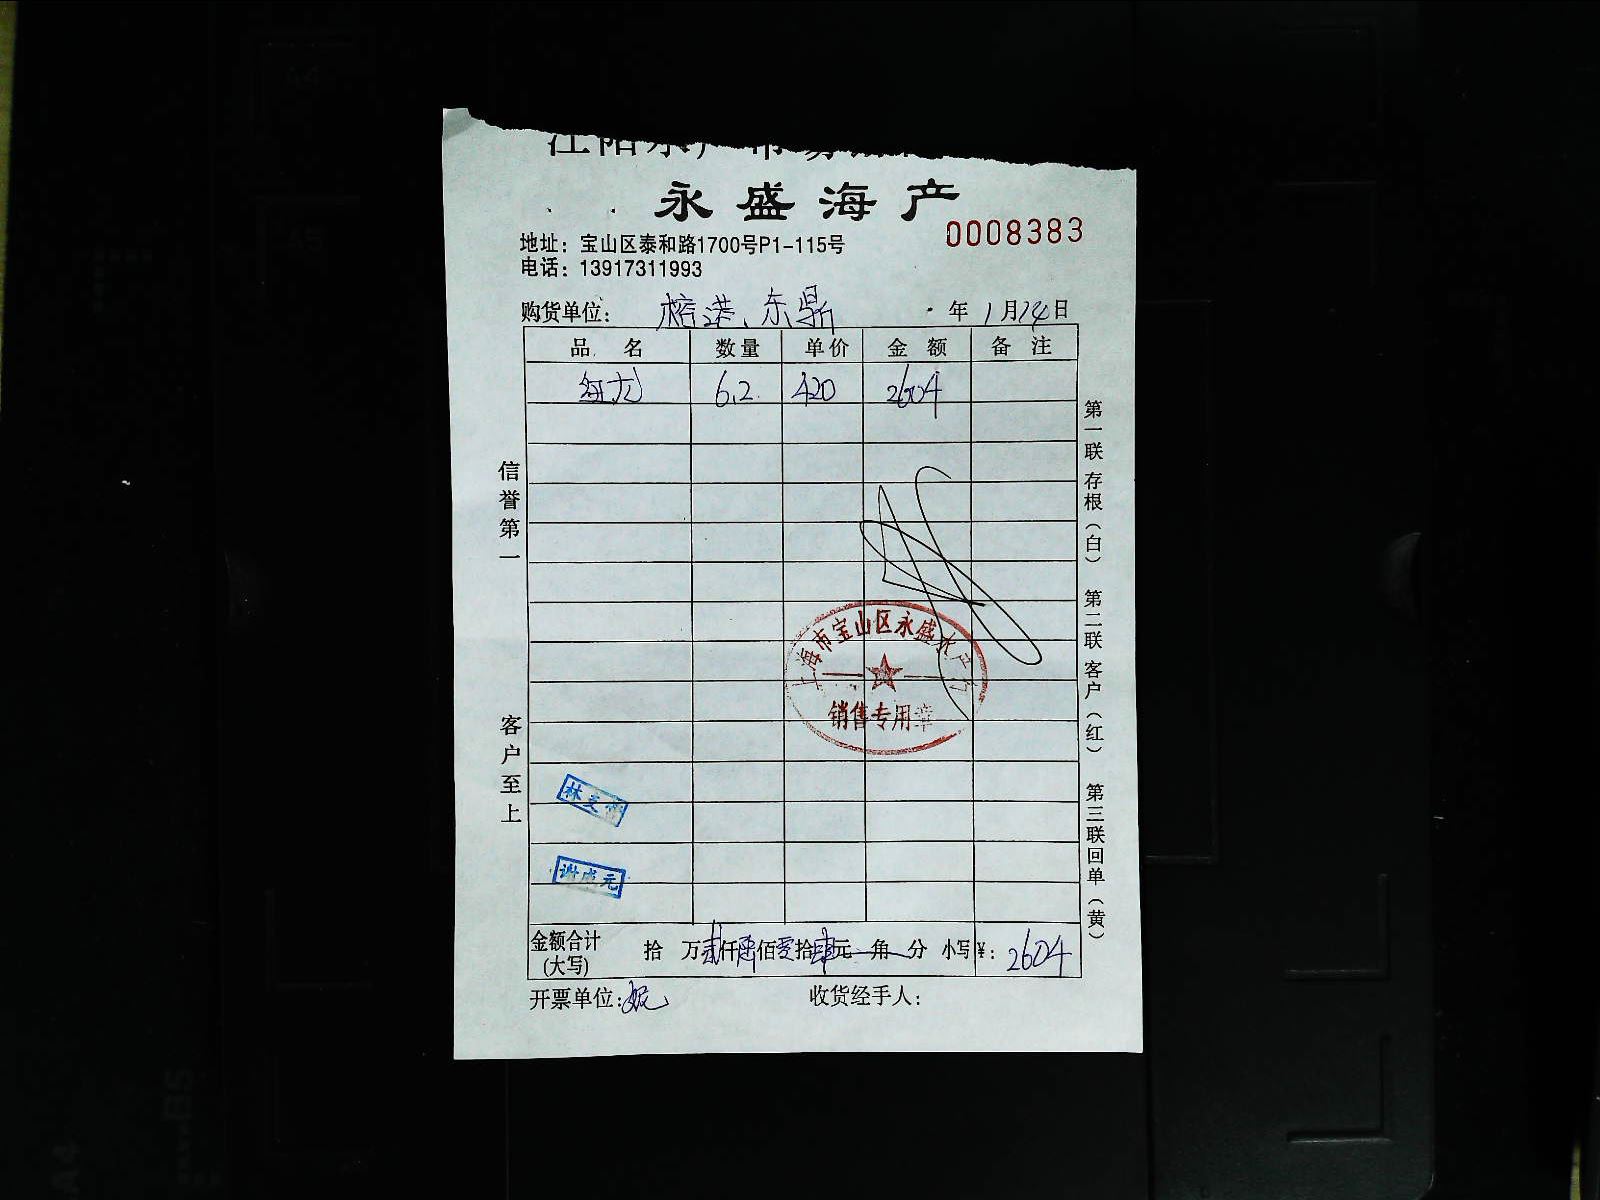 永盛海产
0008383
地址：宝山区泰和路1700号P1-115号
电话：13917311993
购货单位：榕港、东鼎 年1月14日
品名 数量 单价 金额 备注
红龙 6.2 420 2604
信誉第一
客户至上
第一联存根（白） 第二联客户（红） 第三联回单（黄）
上海市宝山区永盛水产行
销售专用章
谢成元
金额合计(大写) 拾 万贰仟陆佰零拾肆元 角 分 小写¥：2604
开票单位：
收货经手人：
A4